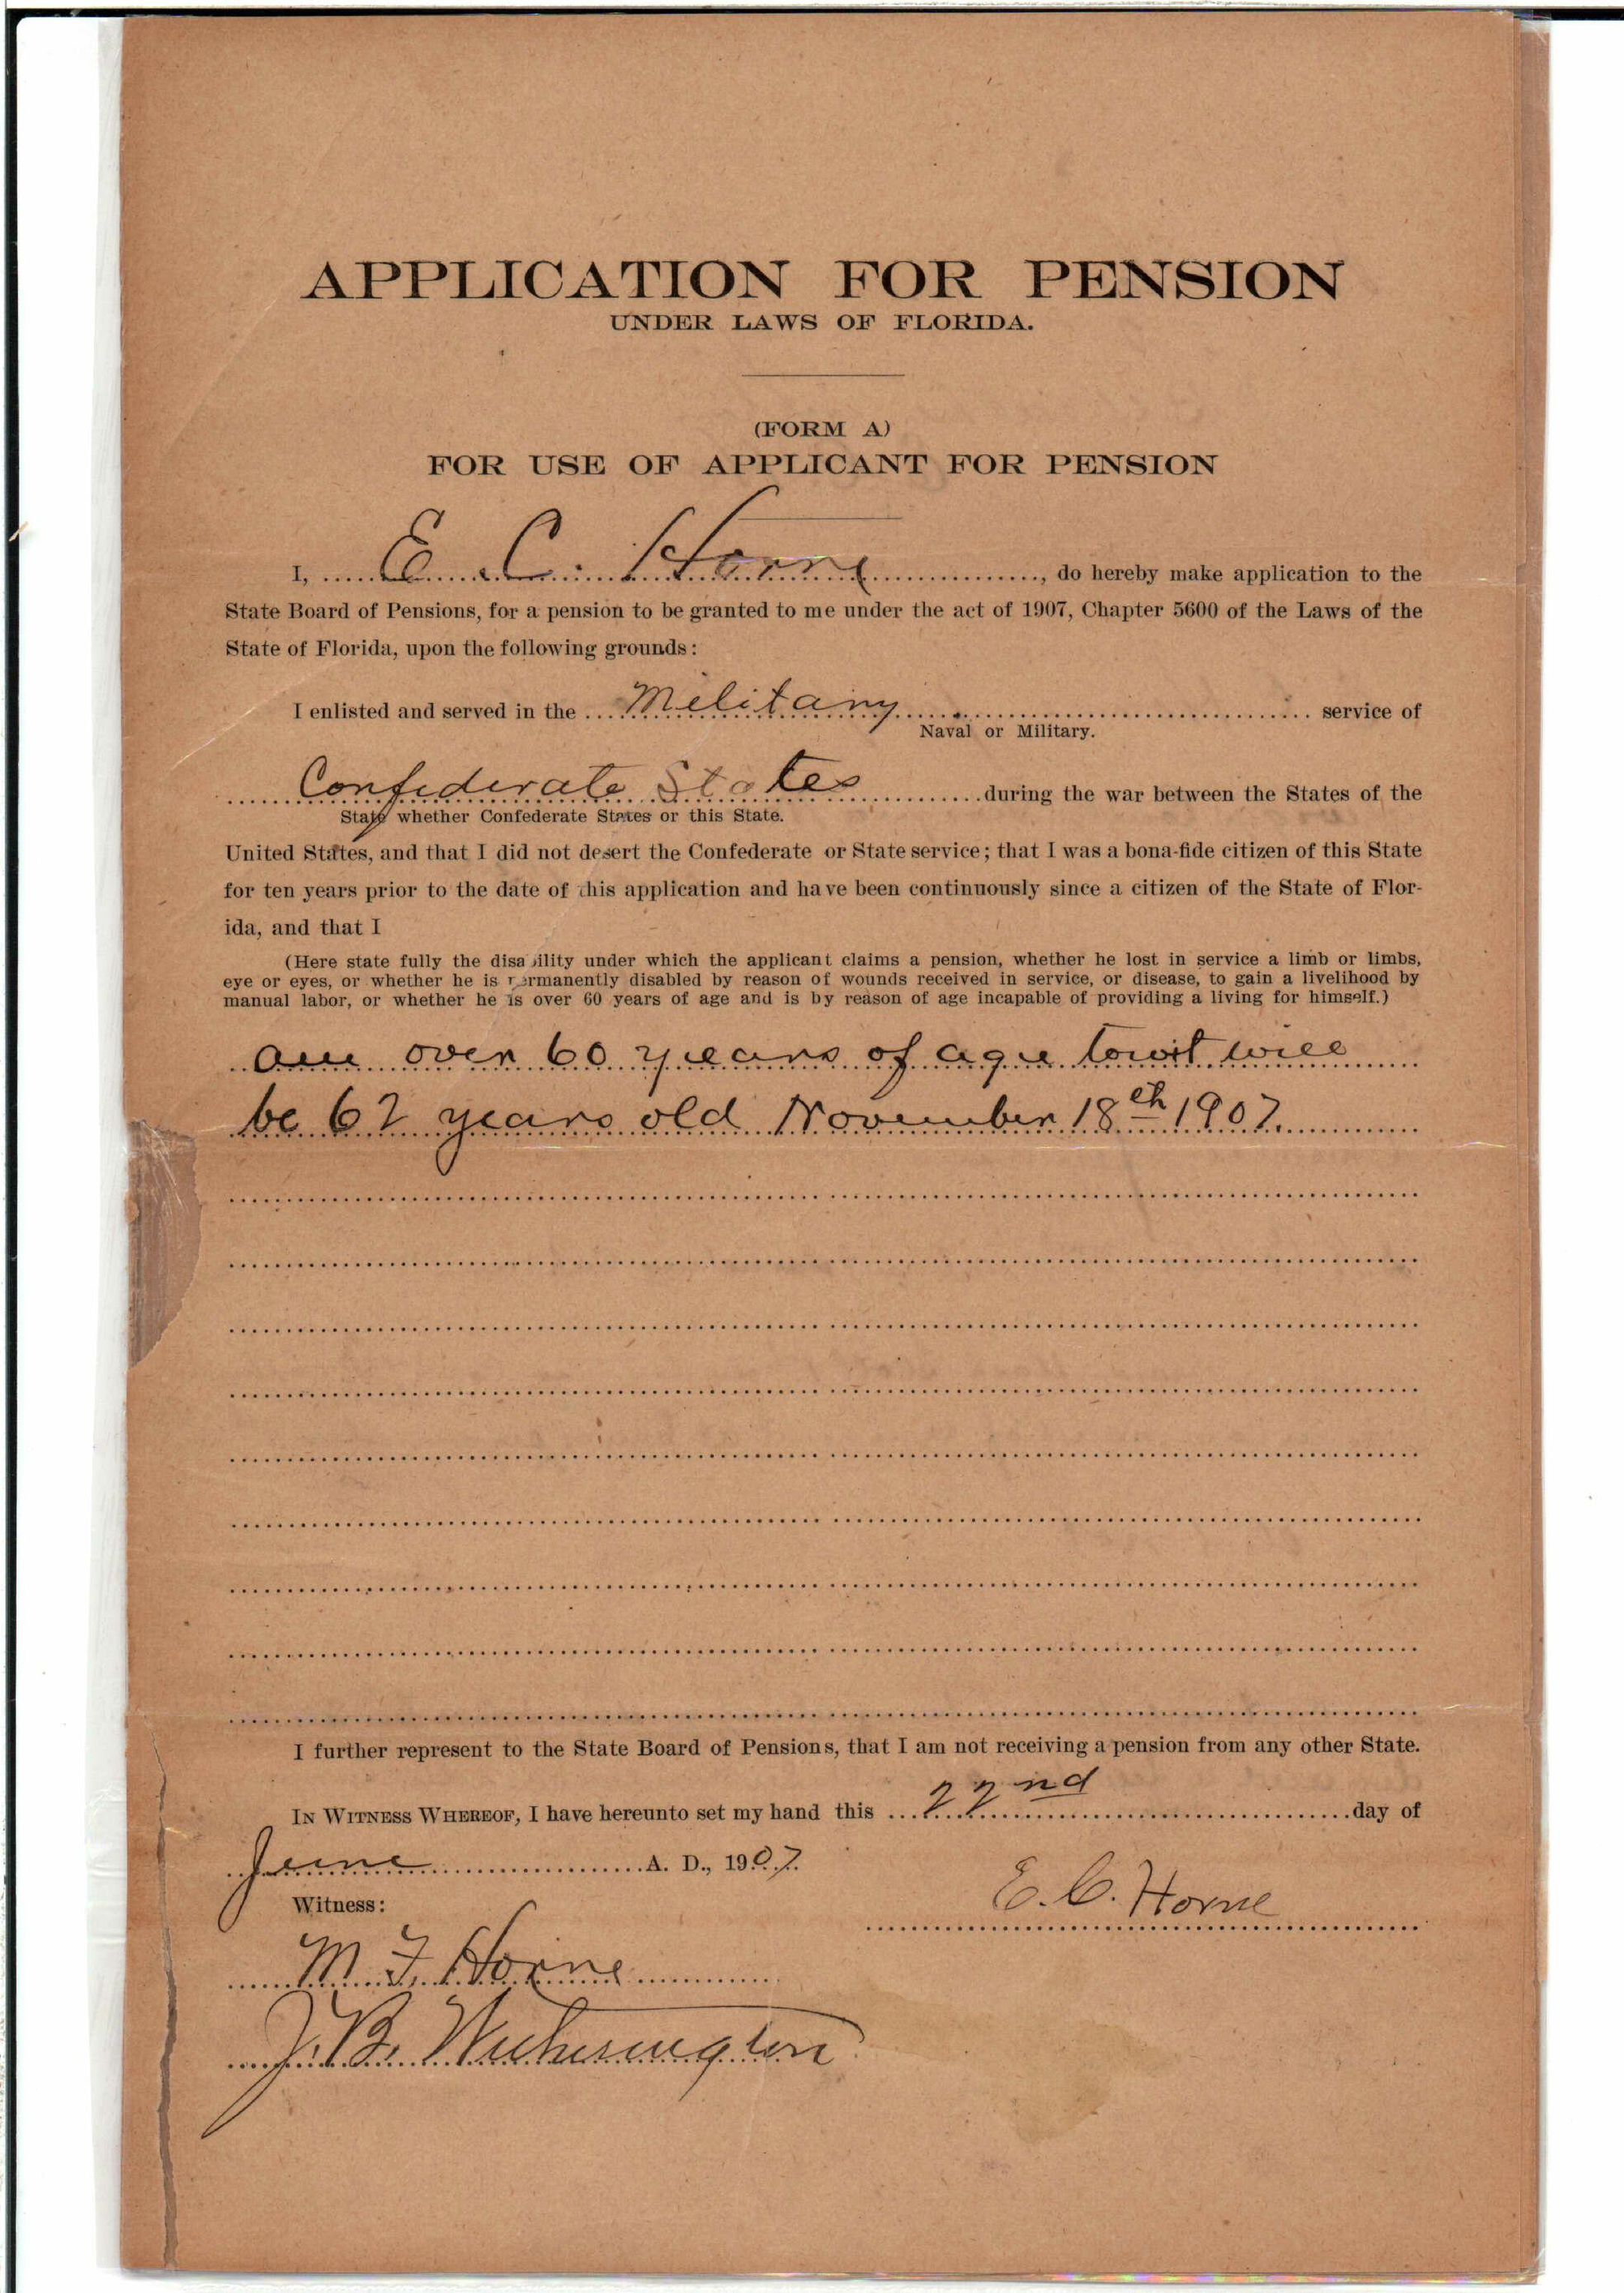 APPLICATION FOR PENSION
UNDER LAWS OF FLORIDA.
(FORM A)
FOR USE OF APPLICANT FOR PENSION
I, E. C. Horne, do hereby make application to the
State Board of Pensions, for a pension to be granted to me under the act of 1907, Chapter 5600 of the Laws of the
State of Florida, upon the following grounds:
I enlisted and served in the Melitary service of
Naval or Military.
Confederate States during the war between the States of the
State whether Confederate States or this State.
United States, and that I did not desert the Confederate or State service; that I was a bona-fide citizen of this State
for ten years prior to the date of this application and have been continuously since a citizen of the State of Flor-
ida, and that I
(Here state fully the disability under which the applicant claims a pension, whether he lost in service a limb or limbs,
eye or eyes, or whether he is permanently disabled by reason of wounds received in service, or disease, to gain a livelihood by
manual labor, or whether he is over 60 years of age and is by reason of age incapable of providing a living for himself.)
am over 60 years of age towit will
be 62 years old November 18th 1907.
I further represent to the State Board of Pensions, that I am not receiving a pension from any other State.
IN WITNESS WHEREOF, I have hereunto set my hand this 22nd day of
June A. D., 1907.
Witness:
E. C. Horne
M. F. Horne
J. B. Witherington